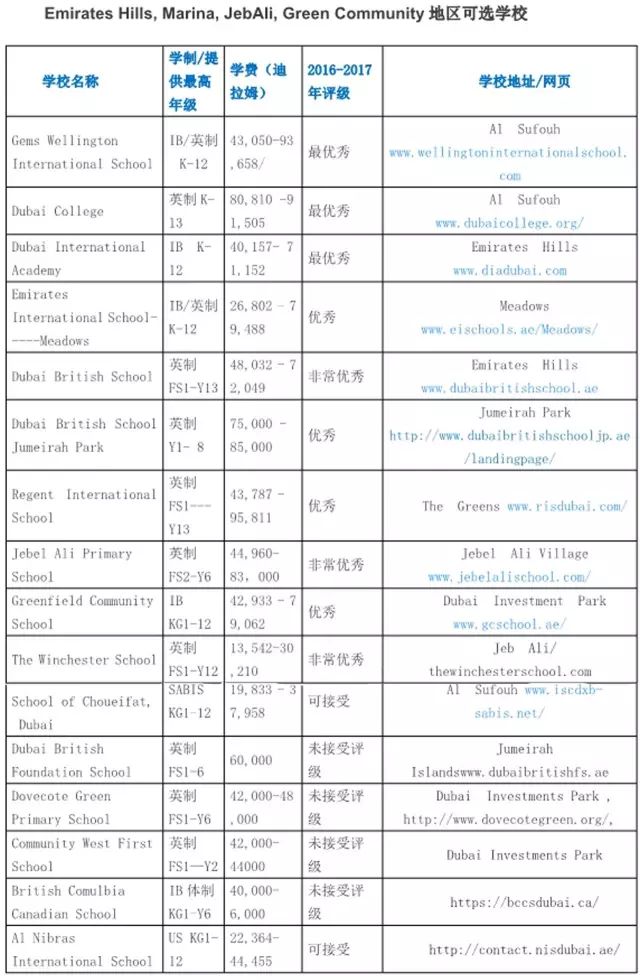 Emirates Hills, Marina, JebAli, Green Community 地区可选学校
学校名称
学制/提
供最高
年级
学费（迪
拉姆）
2016-2017
年评级
学校地址/网页
Gems Wellington
International School
IB/英制
K-12
43,050-93
,658/
最优秀
Al Sufouh
www.wellingtoninternationalschool.
com
Dubai College
英制 K-
13
80,810 -9
1,505
最优秀
Al Sufouh
www.dubaicollege.org/
Dubai International
Academy
IB K-
12
40,157- 7
1,152
最优秀
Emirates Hills
www.diadubai.com
Emirates
International School-
----Meadows
IB/英制
K-12
26,802 - 7
9,488
优秀
Meadows
www.eischools.ae/Meadows/
Dubai British School
英制
FS1-Y13
48,032 - 7
2,049
非常优秀
Emirates Hills
www.dubaibritishschool.ae
Dubai British School
Jumeirah Park
英制
Y1- 8
75,000 -
85,000
优秀
Jumeirah Park
http://www.dubaibritishschooljp.ae
/landingpage/
Regent International
School
英制
FS1---
Y13
43,787 -
95,811
优秀
The Greens www.risdubai.com/
Jebel Ali Primary
School
英制
FS2-Y6
44,960-
83，000
非常优秀
Jebel Ali Village
www.jebelalischool.com/
Greenfield Community
School
IB
KG1-12
42,933 - 7
9,062
优秀
Dubai Investment Park
www.gcschool.ae/
The Winchester School
英制
FS1-Y12
13,542-30
,210
非常优秀
Jeb Ali/
thewinchesterschool.com
School of Choueifat,
Dubai
SABIS
KG1-12
19,833 - 3
7,958
可接受
Al Sufouh www.iscdxb-
sabis.net/
Dubai British
Foundation School
英制
FS1-6
60,000
未接受评
级
Jumeirah
Islandswww.dubaibritishfs.ae
Dovecote Green
Primary School
英制
FS1-Y6
42,000-48
,000
未接受评
级
Dubai Investments Park ,
http://www.dovecotegreen.org/,
Community West First
School
英制
FS1—Y2
42,000-
44000
未接受评
级
Dubai Investments Park
British Comulbia
Canadian School
IB 体制
KG1-Y6
40,000-
6,000
未接受评
级
https://bccsdubai.ca/
Al Nibras
International School
US KG1-
12
22,364-
44,455
可接受
http://contact.nisdubai.ae/